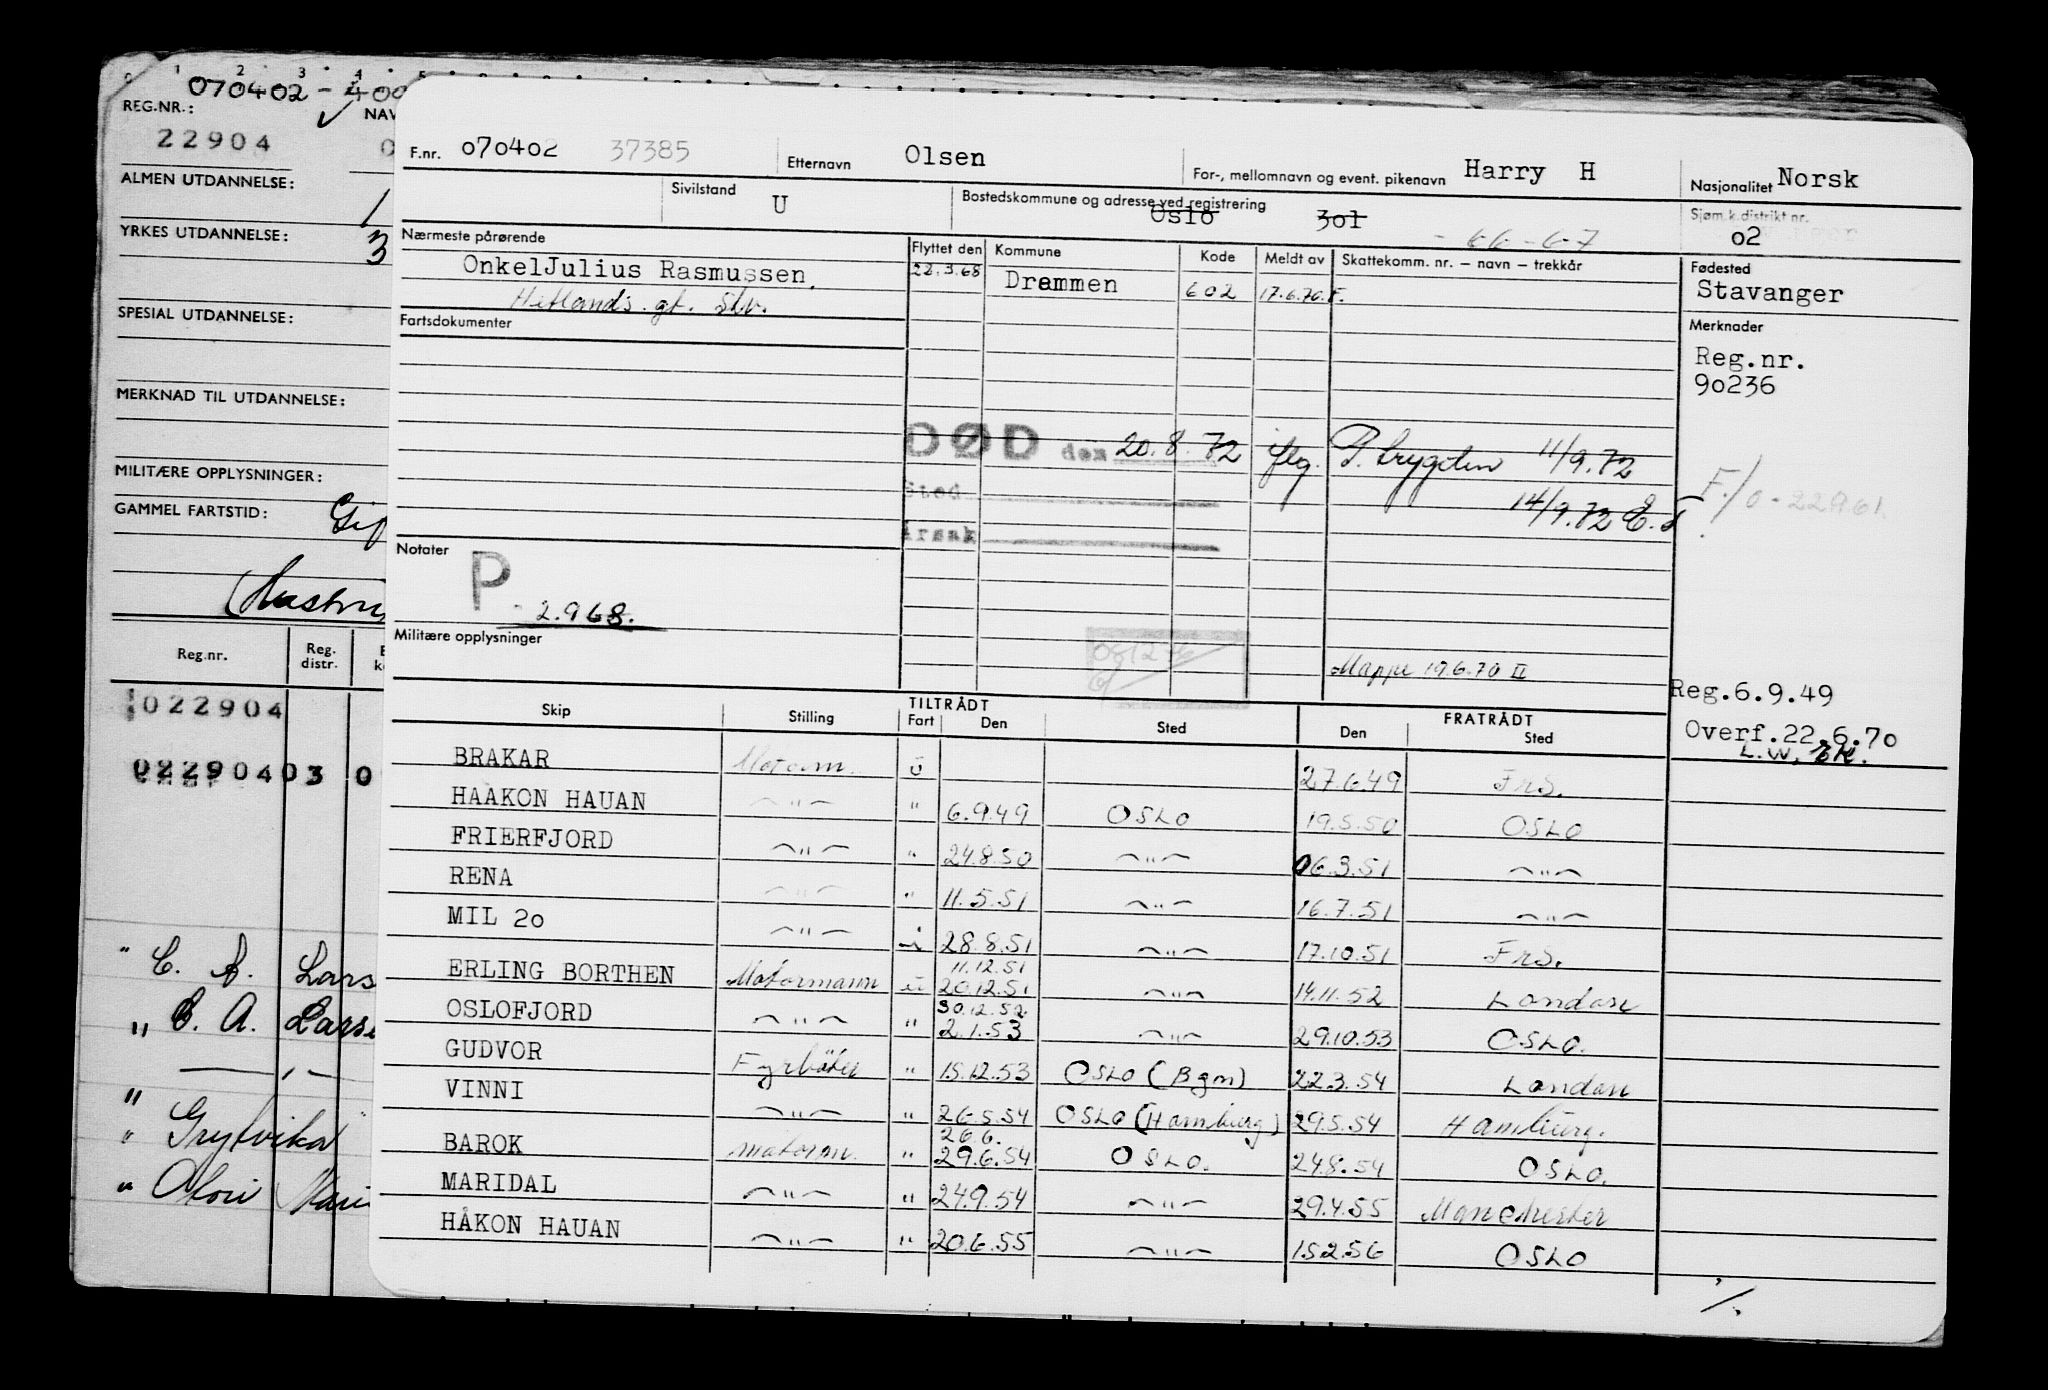 0 1 2 3 4 5
070402 - 400
REG.NR.: NAV
22904
ALMEN UTDANNELSE: 1
YRKES UTDANNELSE: 3
SPESIAL UTDANNELSE:
MERKNAD TIL UTDANNELSE:
MILITÆRE OPPLYSNINGER:
GAMMEL FARTSTID:
Reg.nr. Reg. distr.
022904
022904 03 0
" C. A. Lars
" C. A. Larse
"
" Grytvika
" Mari
F.nr. 070402 37385 Etternavn Olsen For-, mellomnavn og event. pikenavn Harry H Nasjonalitet Norsk
Sivilstand U Bostedskommune og adresse ved registrering Oslo 301 - 66-67 Sjøm.k.distrikt nr. 02
Nærmeste pårørende Flyttet den Kommune Kode Meldt av Skattekomm. nr. — navn — trekkår Fødested
OnkelJulius Rasmussen. 22.3.68 Drammen 602 17.6.70.F. Stavanger
Hetlands. gt. Stv.
Fartsdokumenter Merknader
Reg.nr.
90236
DØD den 20.8.72 iflg. P. trygden 11/9.72
Sted 14/9.72 E.T
F./0-22961
Årsak
Notater
P - 2.968.
Militære opplysninger
Mappe 19.6.70 II
Reg.6.9.49
Overf.22.6.70
L.W.
TILTRÅDT FRATRÅDT
Skip Stilling Fart Den Sted Den Sted
BRAKAR Motorm. U 27.6.49 Frs.
HAAKON HAUAN —"— " 6.9.49 OSLO 19.5.50 OSLO
FRIERFJORD —"— " 24.8.50 —"— 06.3.51 —"—
RENA —"— " 11.5.51 —"— 16.7.51 —"—
MIL 20 —"— i 28.8.51 —"— 17.10.51 Frs.
11.12.51
ERLING BORTHEN Motormann u 20.12.51 —"— 14.11.52 London
30.12.52
OSLOFJORD —"— " 2.1.53 —"— 29.10.53 OSLO.
GUDVOR Fyrbøter " 15.12.53 OSLO (Bgn) 22.3.54 London
VINNI —"— " 26.5.54 OSLO (Hamburg) 29.5.54 Hamburg.
26.6.
BAROK motorm. " 29.6.54 OSLO. 24.8.54 OSLO.
MARIDAL —"— " 24.9.54 —"— 29.4.55 Manchester
HÅKON HAUAN —"— " 20.6.55 —"— 15.2.56 OSLO
./.